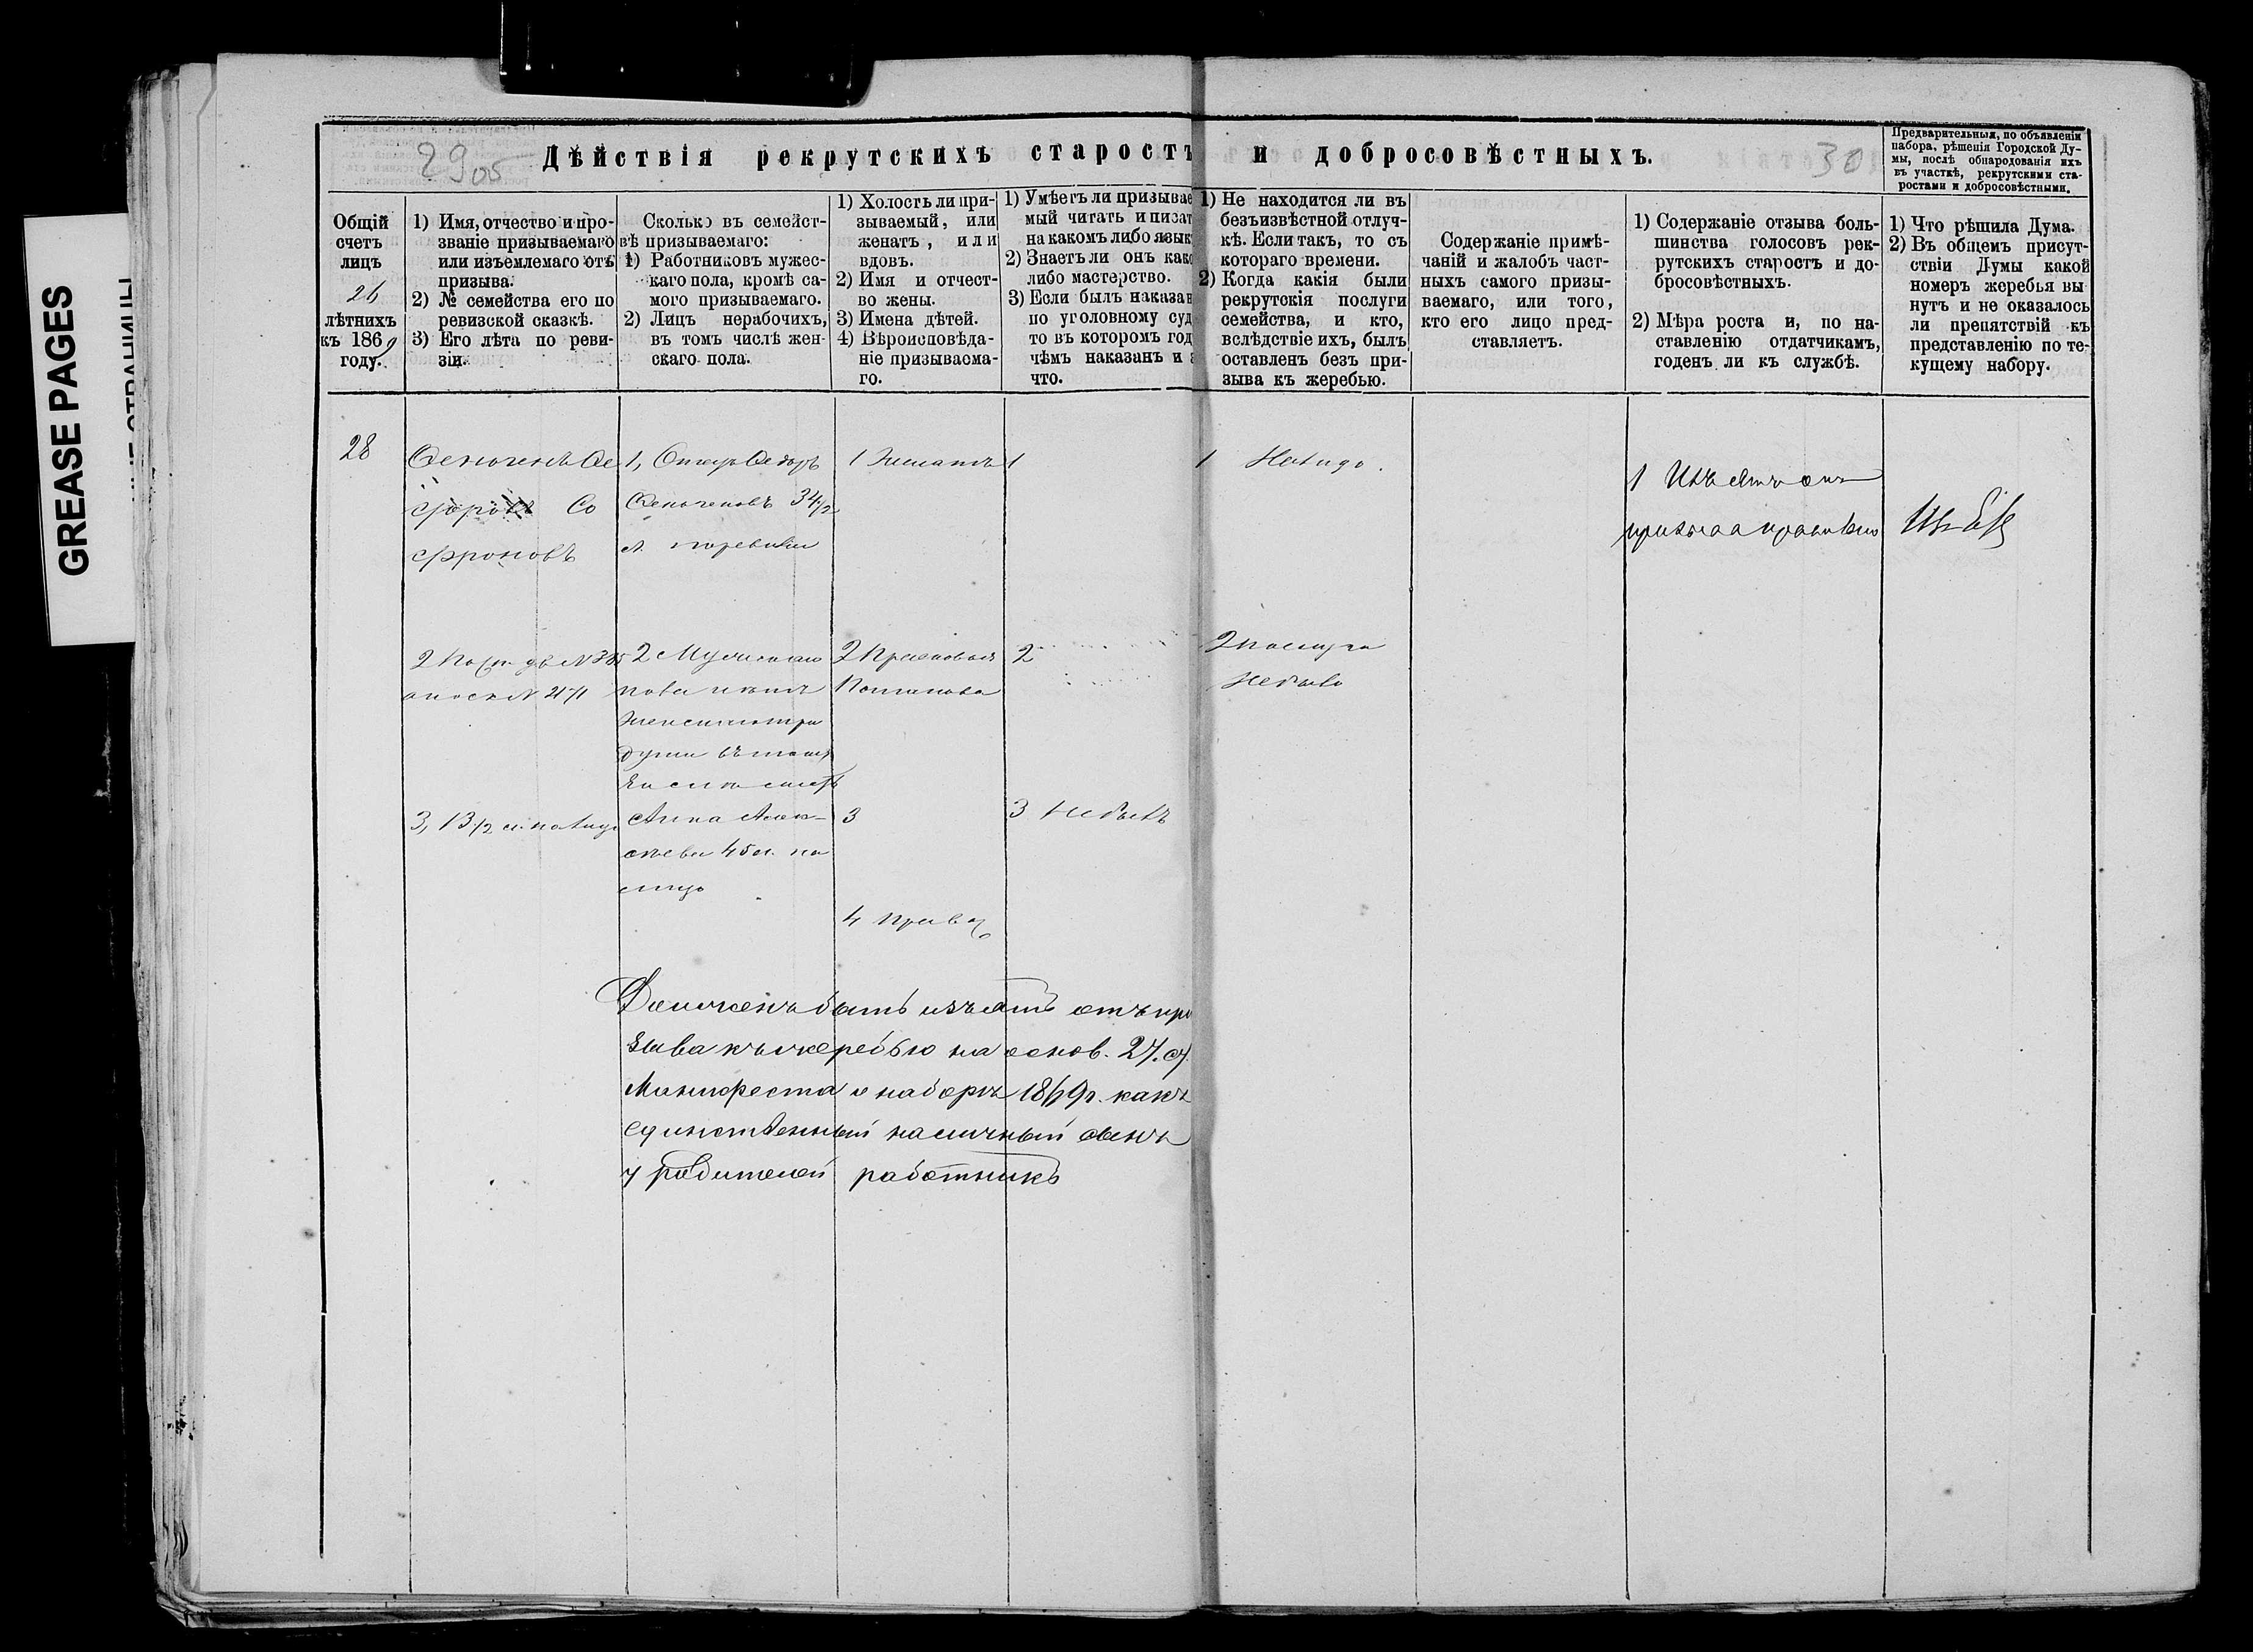 GREASE PAGES
29 об
Дѣйствія рекрутскихъ старостъ и добросовѣстныхъ.
30
Предварительныя, по объявленіи
набора, рѣшенія Городской Ду-
мы, послѣ обнародованія ихъ
въ участкѣ, рекрутскими ста-
ростами и добросовѣстными.
Общій
счетъ
лицъ
26
лѣтнихъ
къ 1869
году.
1) Имя, отчество и про-
званіе призываемаго
или изъемлемаго отъ
призыва.
2) № семейства его по
ревизской сказкѣ.
3) Его лѣта по реви-
зіи.
Сколько въ семейст-
вѣ призываемаго:
1) Работниковъ мужес-
каго пола, кромѣ са-
мого призываемаго.
2) Лицъ нерабочихъ,
въ томъ числѣ жен-
скаго пола.
1) Холостъ ли при-
зываемый, или
женатъ, или
вдовъ.
2) Имя и отчест-
во жены.
3) Имена дѣтей.
4) Вѣроисповѣда-
ніе призываема-
го.
1) Умѣетъ ли призывае
мый читать и писат
на какомъ либо язык
2) Знаетъ ли онъ како
либо мастерство.
3) Если былъ наказан
по уголовному суд
то въ которомъ год
чѣмъ наказанъ и з
что.
1) Не находится ли въ
безъизвѣстной отлуч-
кѣ. Если такъ, то съ
котораго времени.
2) Когда какія были
рекрутскія послуги
семейства, и кто,
вслѣдствіе ихъ, былъ
оставленъ безъ при-
зыва къ жеребью.
Содержаніе примѣ-
чаній и жалобъ част-
ныхъ самого призы-
ваемаго, или того,
кто его лицо пред-
ставляетъ.
1) Содержаніе отзыва боль-
шинства голосовъ рек-
рутскихъ старостъ и до-
бросовѣстныхъ.
2) Мѣра роста и, по на-
ставленію отдатчикамъ,
годенъ ли къ службѣ.
1) Что рѣшила Дума.
2) Въ общемъ присут-
ствіи Думы какой
номеръ жеребья вы
нутъ и не оказалось
ли препятствій къ
представленію по те-
кущему набору.
28
Со
фроновъ
1, Отецъ Федоръ
34/2
л. по ревизіи
1 Женатъ
1
1 На лицо.
1 Изъятъ отъ
призыва правильно
2
2
2
Потапова
2
2 послуги
не было
женска три
души въ томъ
3, 13/2 л. на лицо
Анна Алек-
сѣева 45 л. на
лицо
3
3 не былъ
4 Правос
Долженъ быть изъятъ отъ при
зыва къ жеребью на основ. 27. ст.
Манифеста о наборѣ 1869 г. какъ
единственный наличный сынъ
у родителей работникъ